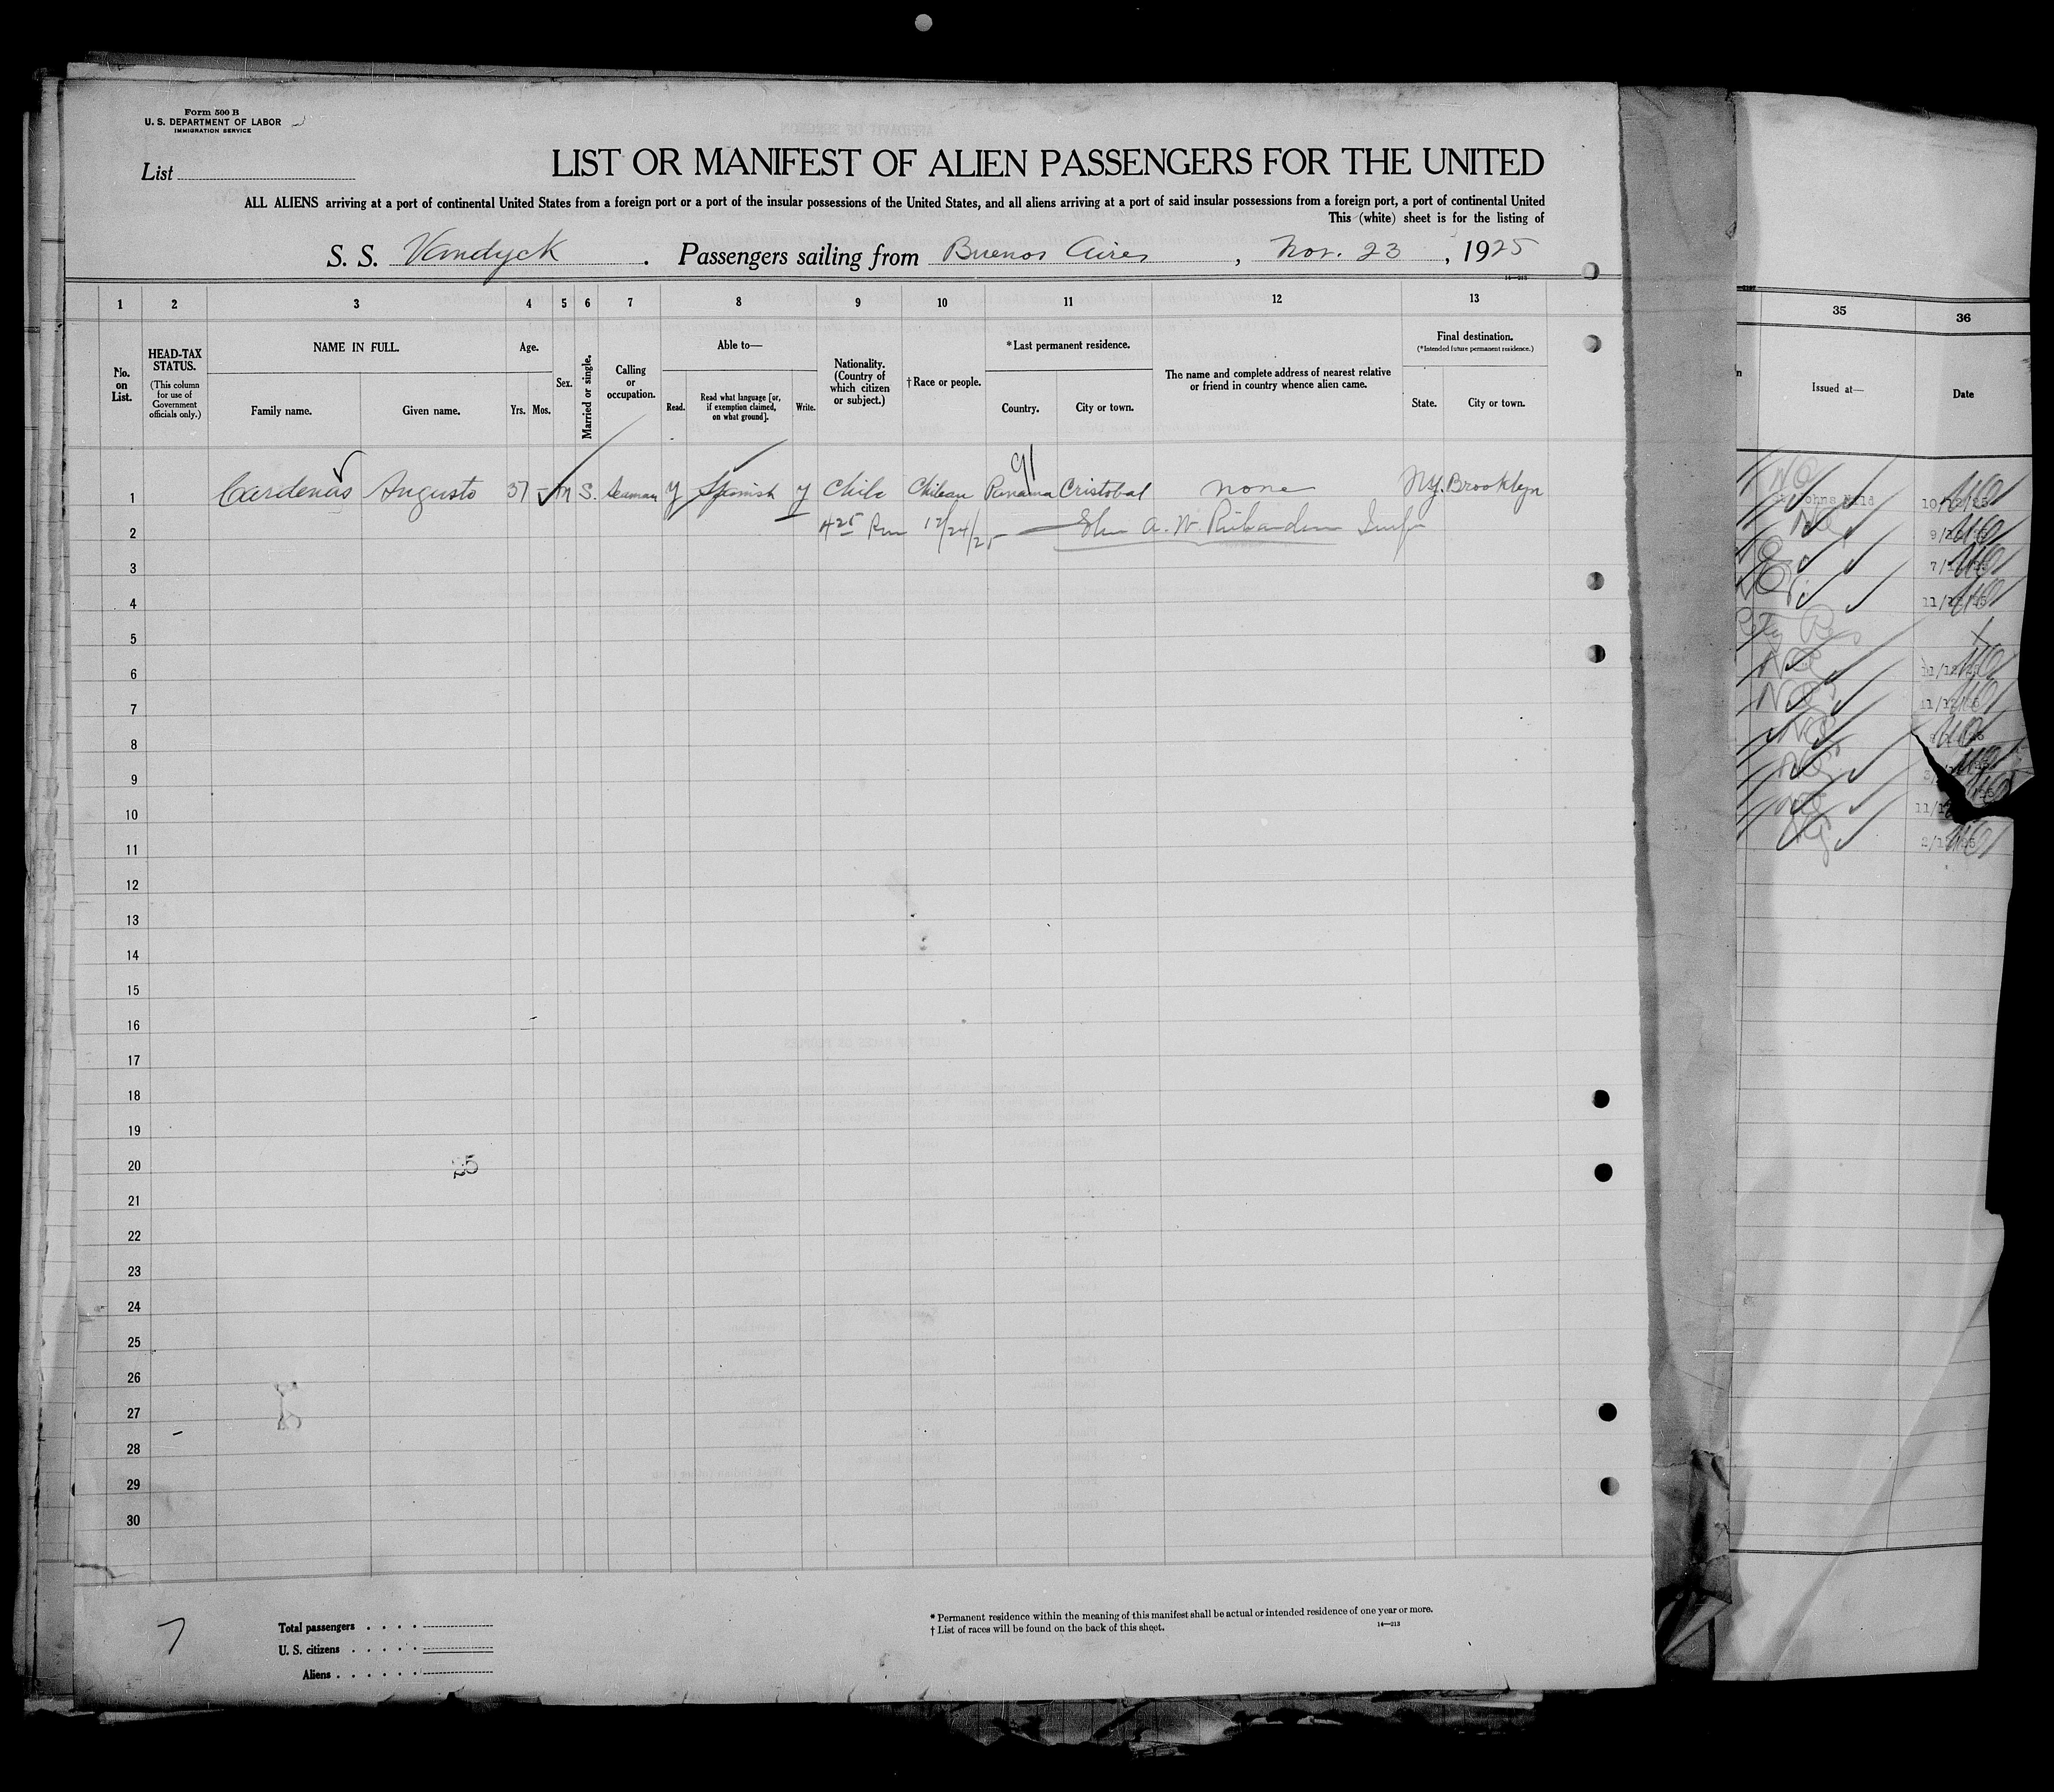 Form 500 B
U. S. DEPARTMENT OF LABOR
IMMIGRATION SERVICE
List
LIST OR MANIFEST OF ALIEN PASSENGERS FOR THE UNITED
ALL ALIENS arriving at a port of continental United States from a foreign port or a port of the insular possessions of the United States, and all aliens arriving at a port of said insular possessions from a foreign port, a port of continental United
This (white) sheet is for the listing of
S. S. Vandyck . Passengers sailing from Buenos Aires , Nov. 23 , 1925
1 2 3 4 5 6 7 8 9 10 11 12 13
No. on List.
HEAD-TAX STATUS.
(This column for use of Government officials only.)
NAME IN FULL.
Family name. Given name.
Age.
Yrs. Mos.
Sex.
Married or single.
Calling or occupation.
Able to—
Read. Read what language [or, if exemption claimed, on what ground]. Write.
Nationality. (Country of which citizen or subject.)
† Race or people.
* Last permanent residence.
Country. City or town.
The name and complete address of nearest relative or friend in country whence alien came.
Final destination.
(* Intended future permanent residence.)
State. City or town.
91
1 Cardenas Augusto 37 - M S. Seaman y Spanish y Chile Chilean Panama Cristobal none NY. Brooklyn
2 12/24/25 A. W. Richardson
3
4
5
6
7
8
9
10
11
12
13
14
15
16
17
18
19
20
21
22
23
24
25
26
27
28
29
30
7
Total passengers
U. S. citizens
Aliens
* Permanent residence within the meaning of this manifest shall be actual or intended residence of one year or more.
† List of races will be found on the back of this sheet.
14—213
35 36
Issued at— Date